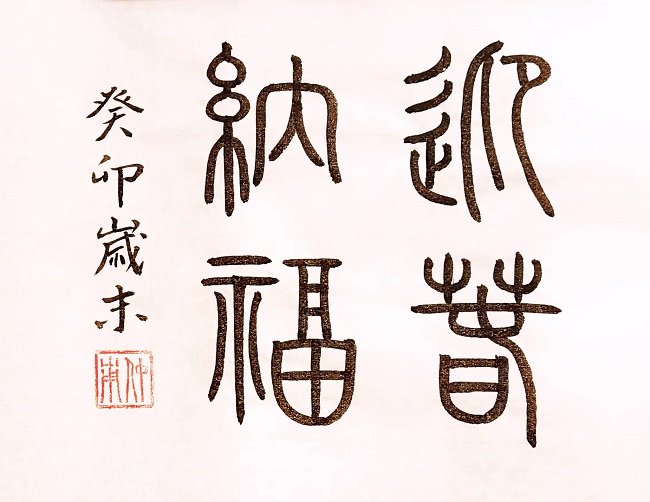 迎春
納福
癸卯歲末
仲甫